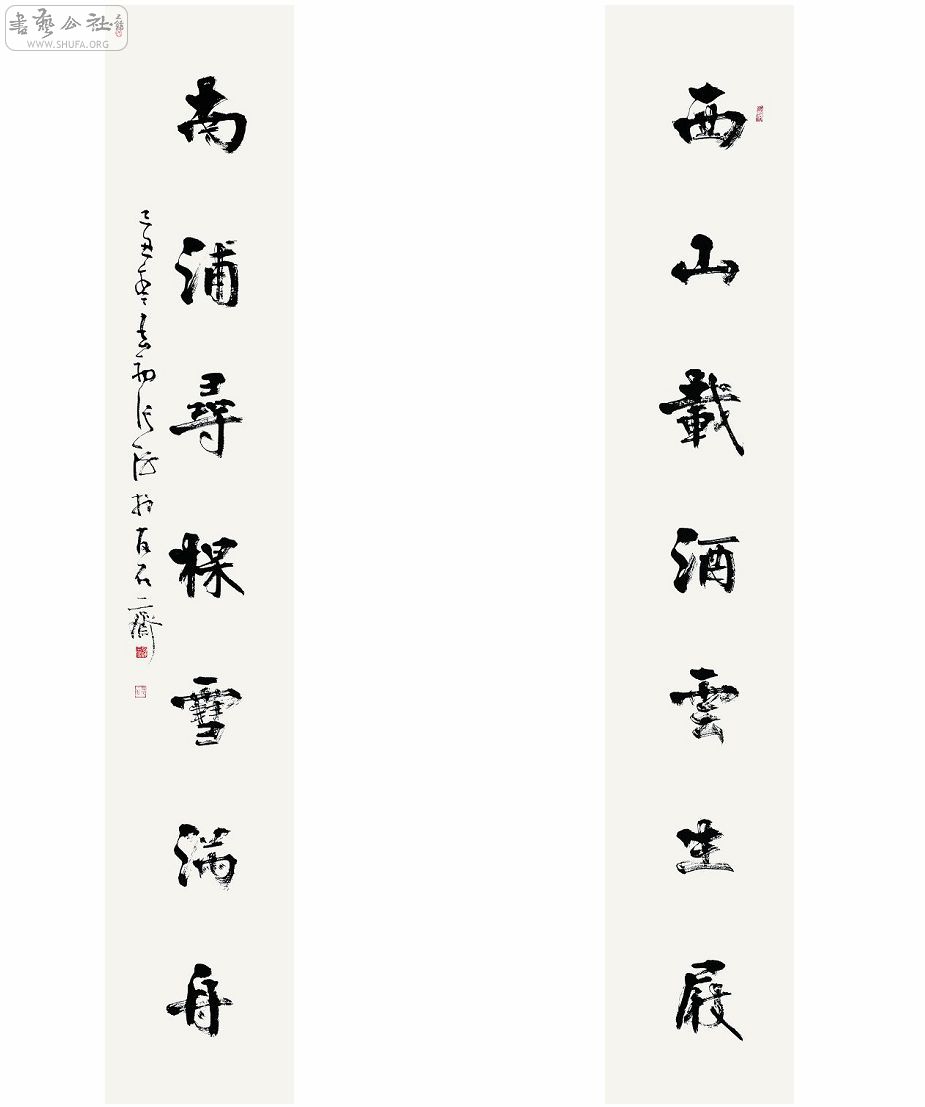 書藝公社
WWW.SHUFA.ORG
西山載酒雲生屐
南浦尋楳雪滿舟
己丑
石齋